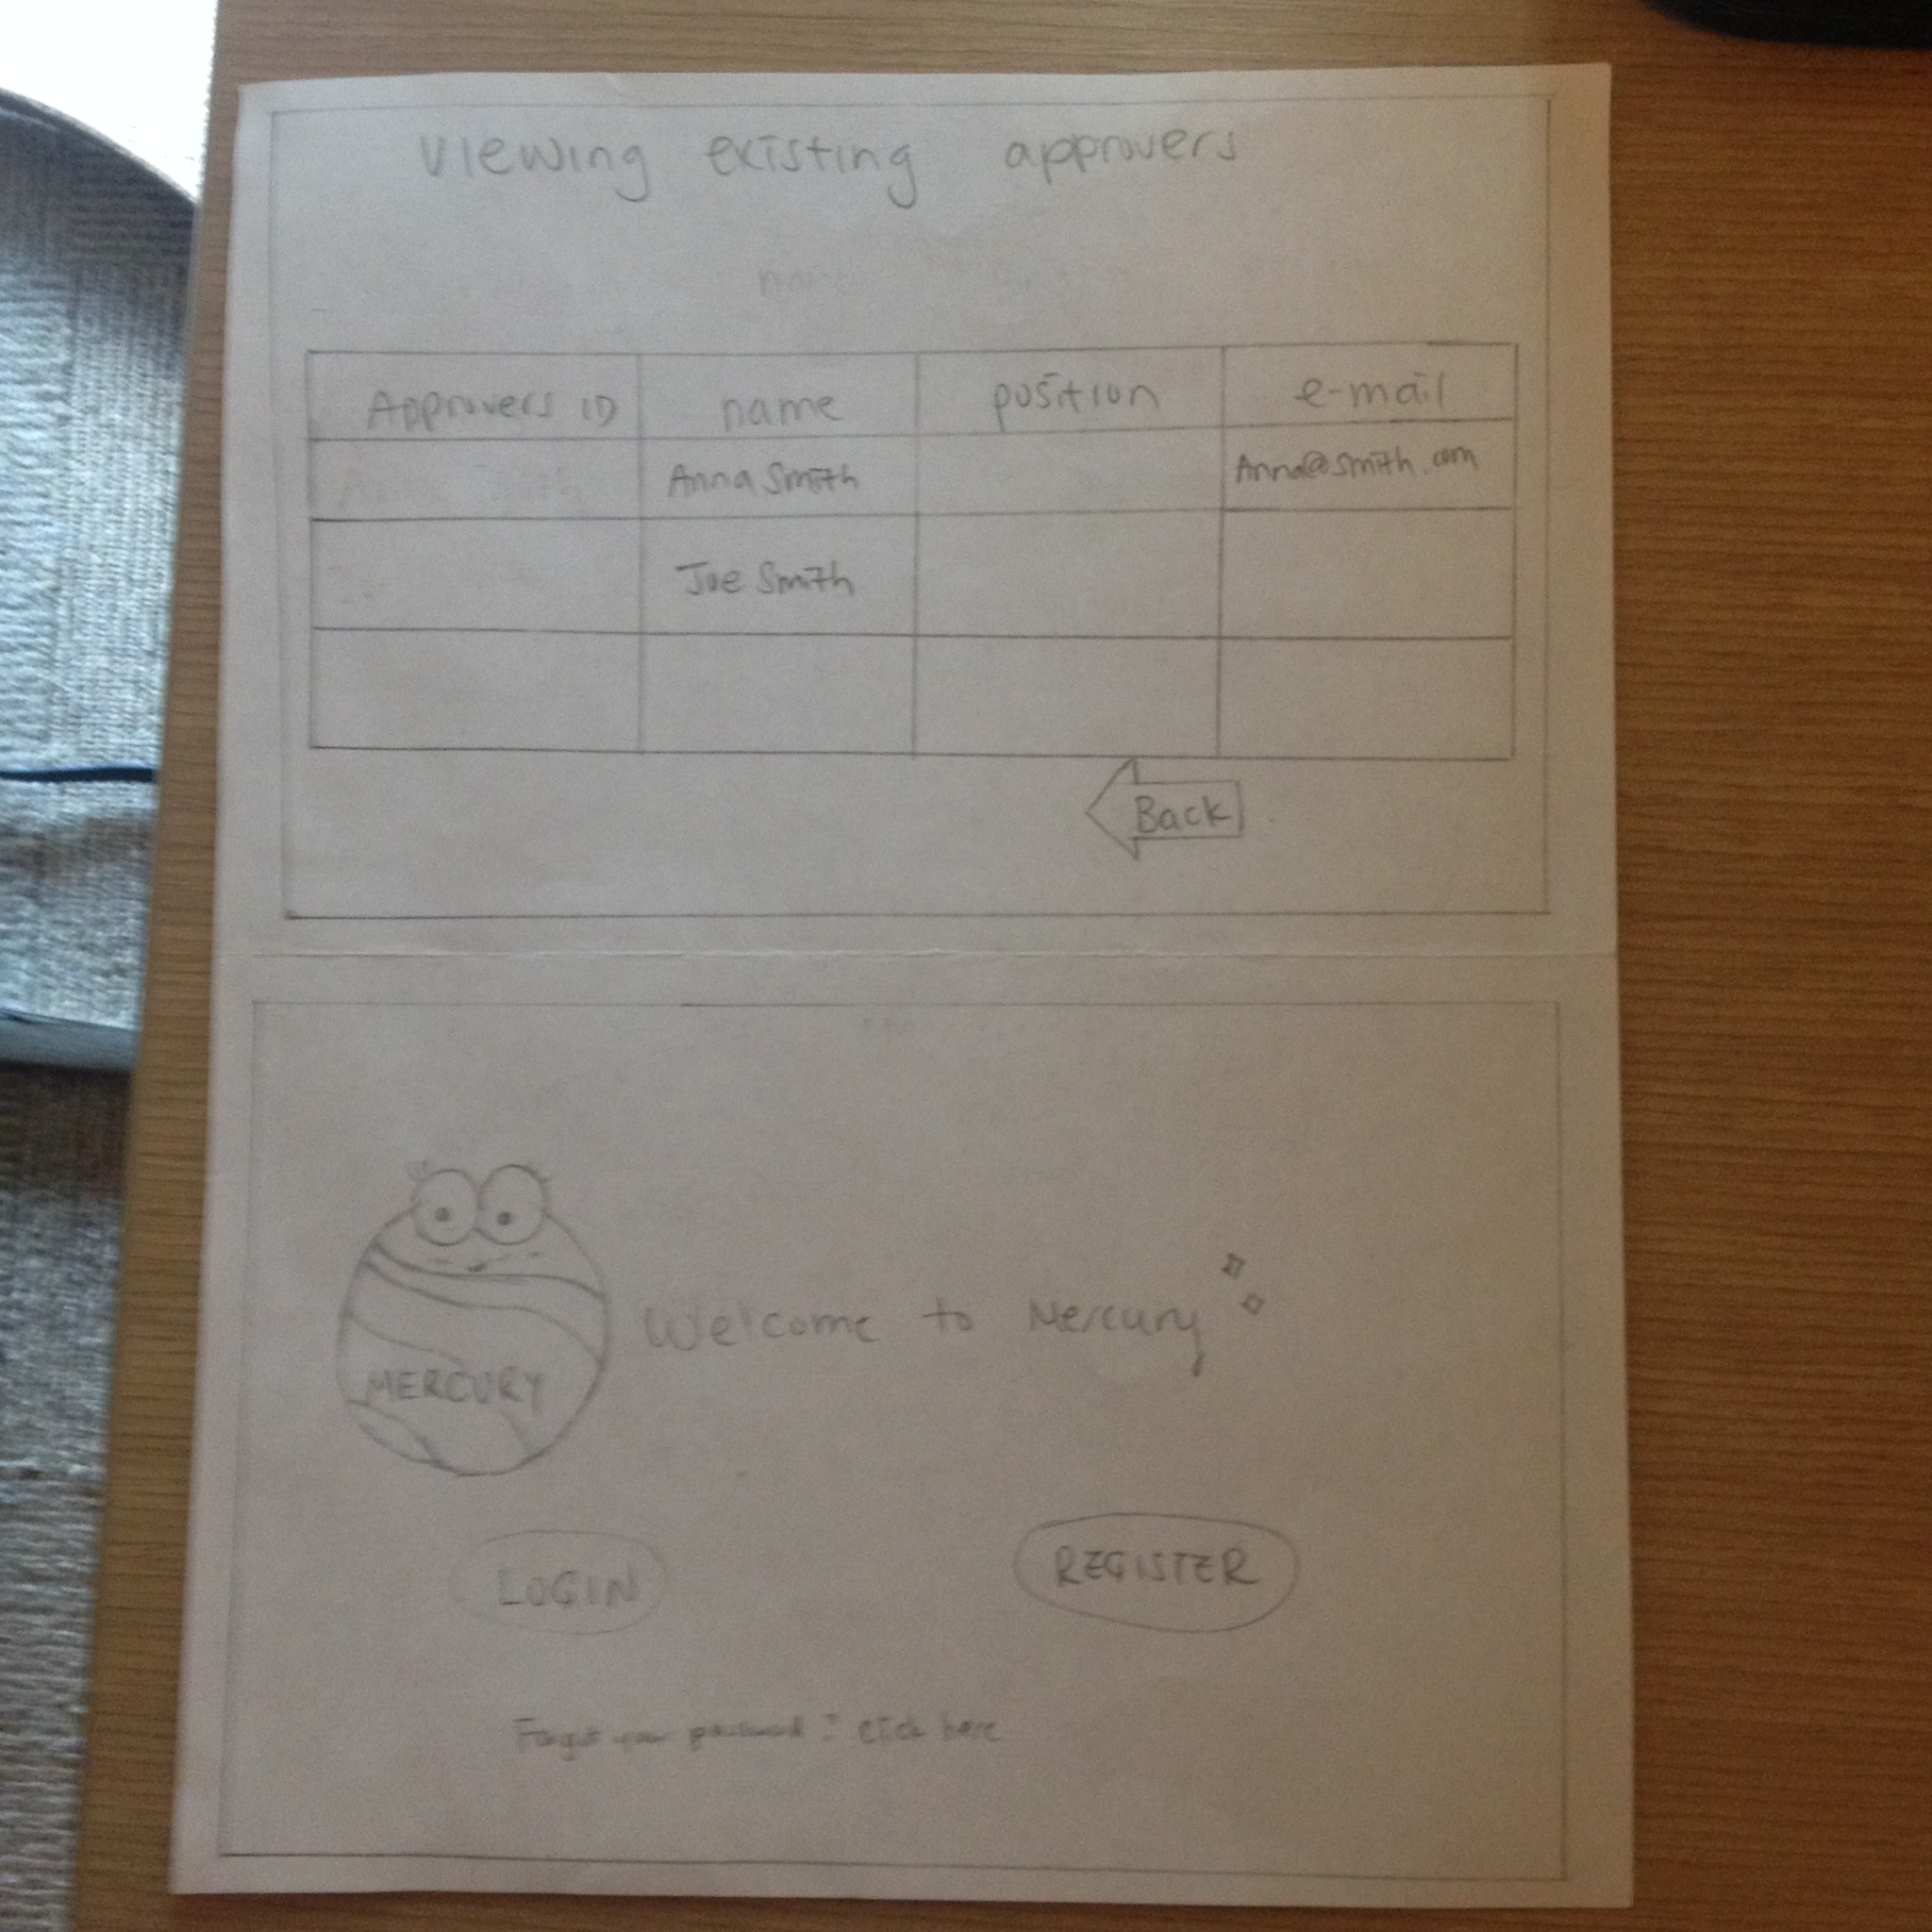 Viewing existing approvers
Approvers ID name position e-mail
Anna Smith Anna@smith.com
Joe Smith
Back
Welcome to Mercury
MERCURY
LOGIN REGISTER
Forgot your password? Click here